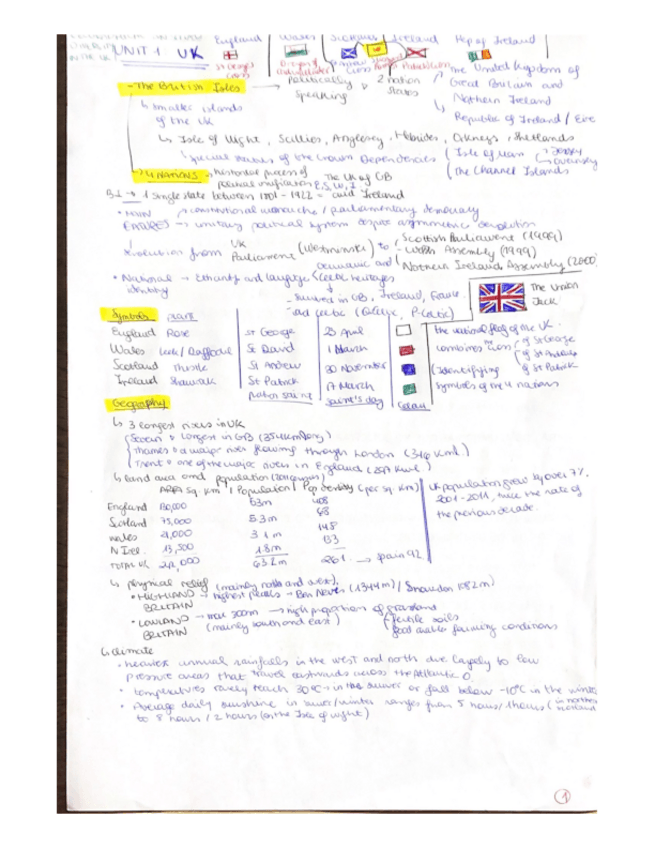 England Wales Scotland Ireland Rep of Ireland
UNIT 1 UK
St George's Cross
- The British Isles → Politically speaking 2 nation states
The United Kingdom of Great Britain and Northern Ireland
Republic of Ireland / Eire
↳ smaller islands of the UK
↳ Isle of Wight, Scillies, Anglesey, Hebrides, Orkneys, Shetlands
special status of the Crown Dependencies ( Isle of Man
the Channel Islands Jersey
Guernsey
4 NATIONS → historical process of political unification E, S, W, I The UK of GB and Ireland
B.I → 1 single state between 1801 - 1922 =
• MAIN → constitutional monarchy / parliamentary democracy
→ unitary political system despite asymmetric devolution
devolution from UK Parliament (Westminster) to
Scottish Parliament (1999)
Welsh Assembly (1999)
Northern Ireland Assembly (2000)
• National identity → Ethnicity and language
Celtic heritages
Germanic and
- survived in GB, Ireland, France.
The Union Jack
Symbols PLANT
England Rose St George 23 April
Wales Leek / Daffodil St David 1 March
Scotland Thistle St Andrew 30 November
Ireland Shamrock St Patrick 17 March
Patron saint Saint's day Colour
the national flag of the UK.
combines the cross of St George
of St Andrew
of St Patrick
(identifying symbols of the 4 nations
Geography
↳ 3 longest rivers in UK
Severn → longest in GB (354km long)
Thames → a major river flowing through London (346 km l.)
Trent → one of the major rivers in England (297 km l.)
↳ land area and population (2011 census)
AREA sq. km | Population | Pop density (per sq. km)
England 130,000 53m 408
Scotland 78,000 5.3m 68
Wales 21,000 3.1m 148
N Irel. 13,500 1.8m 133
TOTAL UK 242,000 63.2m 261 → Spain 92
UK population grew by over 7%, 2001-2011, twice the rate of the previous decade.
↳ physical relief (mainly north and west).
• HIGHLAND BRITAIN → highest peaks - Ben Nevis (1344m) / Snowdon 1082m)
• LOWLAND BRITAIN → max 300m (mainly south and east) → high proportion of grassland
fertile soils
good arable farming conditions
↳ climate
• heaviest annual rainfalls in the west and north due largely to low
pressure areas that travel eastwards across the Atlantic O.
• temperatures rarely reach 30°C in the summer or fall below -10°C in the winter
• Average daily sunshine in summer/winter ranges from 5 hours/1 hours (in northern Scotland
to 8 hours / 2 hours (on the Isle of Wight)
1